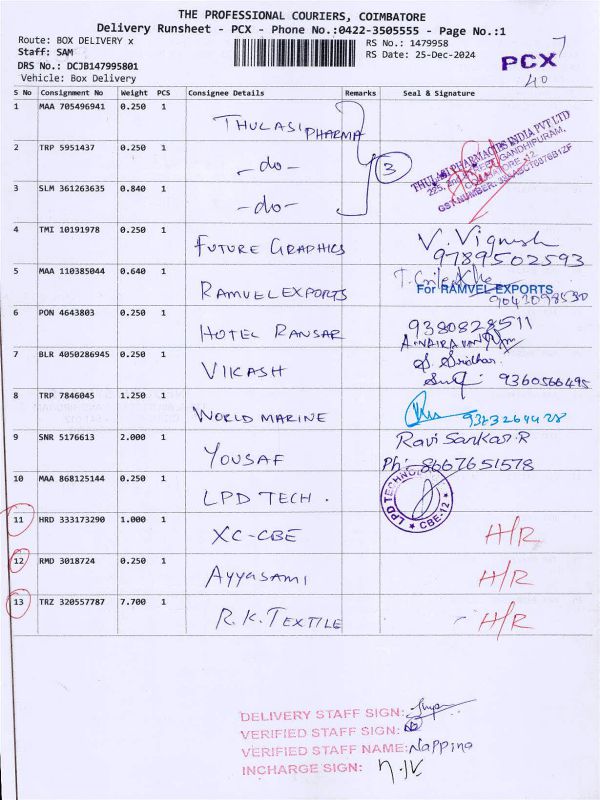 THE PROFESSIONAL COURIERS, COIMBATORE
Delivery Runsheet - PCX - Phone No.:0422-3505555 - Page No.:1
Route: BOX DELIVERY x
Staff: SAM
DRS No.: DCJB147995801
Vehicle: Box Delivery
RS No.: 1479958
RS Date: 25-Dec-2024
PCX
40
S No Consignment No Weight PCS Consignee Details Remarks Seal & Signature
1 MAA 705496941 0.250 1 THULASI PHARMA
THULASI PHARMACIES INDIA PVT LTD
2 TRP 5951437 0.250 1 -do- 3
3 SLM 361263635 0.840 1 -do-
4 TMI 10191978 0.250 1 FUTURE GRAPHICS V. Vignesh
9789502593
5 MAA 110385044 0.640 1 RAMVEL EXPORTS For RAMVEL EXPORTS
9043098530
6 PON 4643803 0.250 1 HOTEL RANSAR 9380828511
7 BLR 4050286945 0.250 1 VIKASH S. Sridhar
9360566495
8 TRP 7846045 1.250 1 WORLD MARINE
9 SNR 5176613 2.000 1 YOUSAF Ravi Sankar.R
Ph: 8667651578
10 MAA 868125144 0.250 1 LPD TECH. LPD TECHNO CBE-12
11 HRD 333173290 1.000 1 XC-CBE H/R
12 RMD 3018724 0.250 1 AYYASAMI H/R
13 TRZ 320557787 7.700 1 R.K.TEXTILE H/R
DELIVERY STAFF SIGN:
VERIFIED STAFF SIGN:
VERIFIED STAFF NAME: Nappina
INCHARGE SIGN: